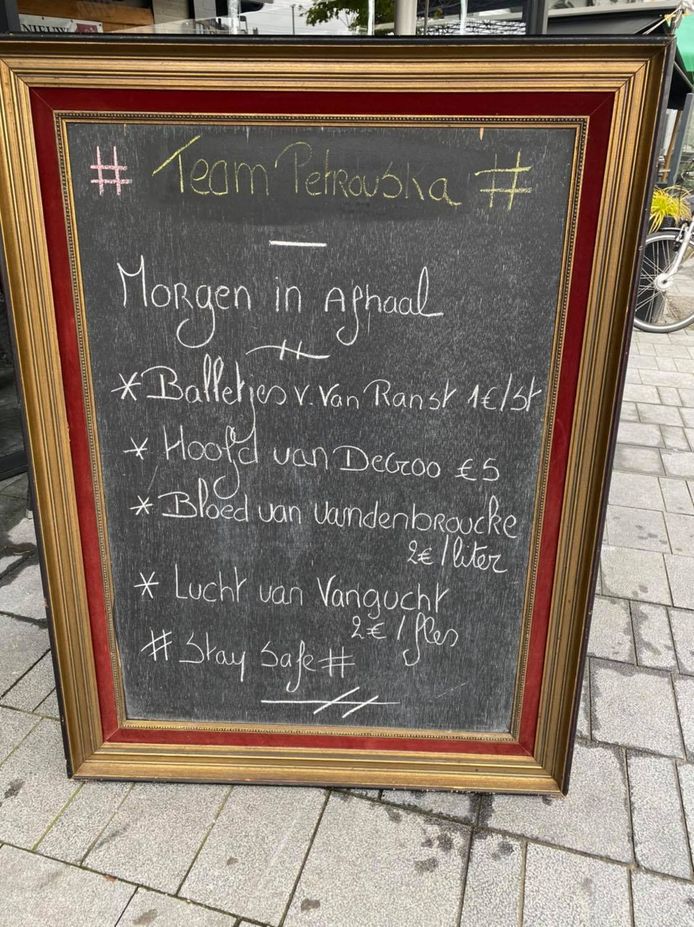 NIEUW
# Team Petrouska #
Morgen in Afhaal
* Balletjes v. Van Ranst 1€/st
* Hoofd van DeCroo €5
* Bloed van Vandenbroucke
2€/liter
* Lucht van Vangucht
2€/fles
# Stay Safe #